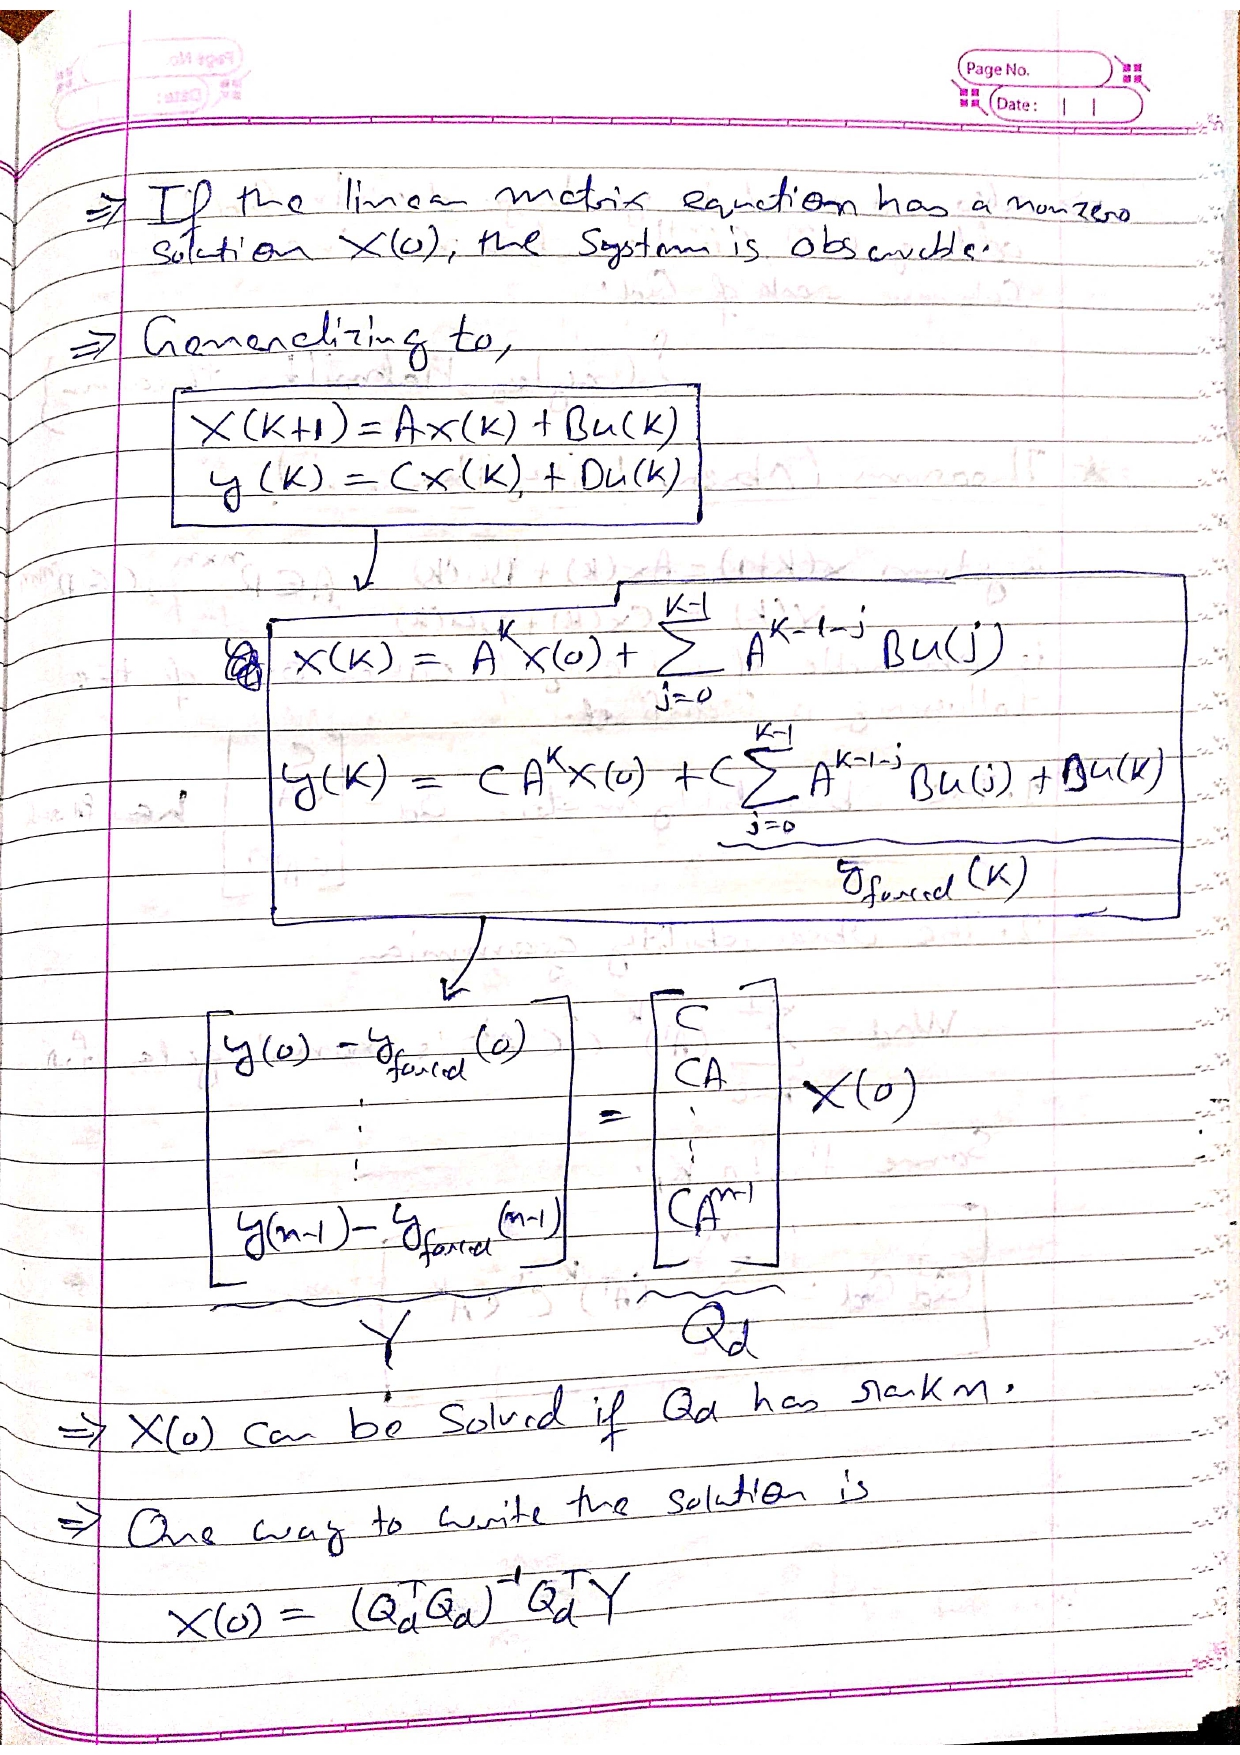 Page No.
Date: | |
⇒ If the linear matrix equation has a nonzero
solution X(0), the System is observable.
⇒ Generalizing to,
X(K+1) = AX(K) + Bu(K)
y(K) = CX(K) + Du(K)
X(K) = A^K X(0) + Σ_{j=0}^{K-1} A^{K-1-j} Bu(j)
y(K) = CA^K X(0) + C Σ_{j=0}^{K-1} A^{K-1-j} Bu(j) + Du(K)
y_forced (K)
[y(0) - y_forced (0) ⋮ y(n-1) - y_forced (n-1)] = [C CA ⋮ CA^{n-1}] X(0)
Y Q_d
⇒ X(0) can be solved if Q_d has rank n.
⇒ One way to write the solution is
X(0) = (Q_d^T Q_d)^{-1} Q_d^T Y